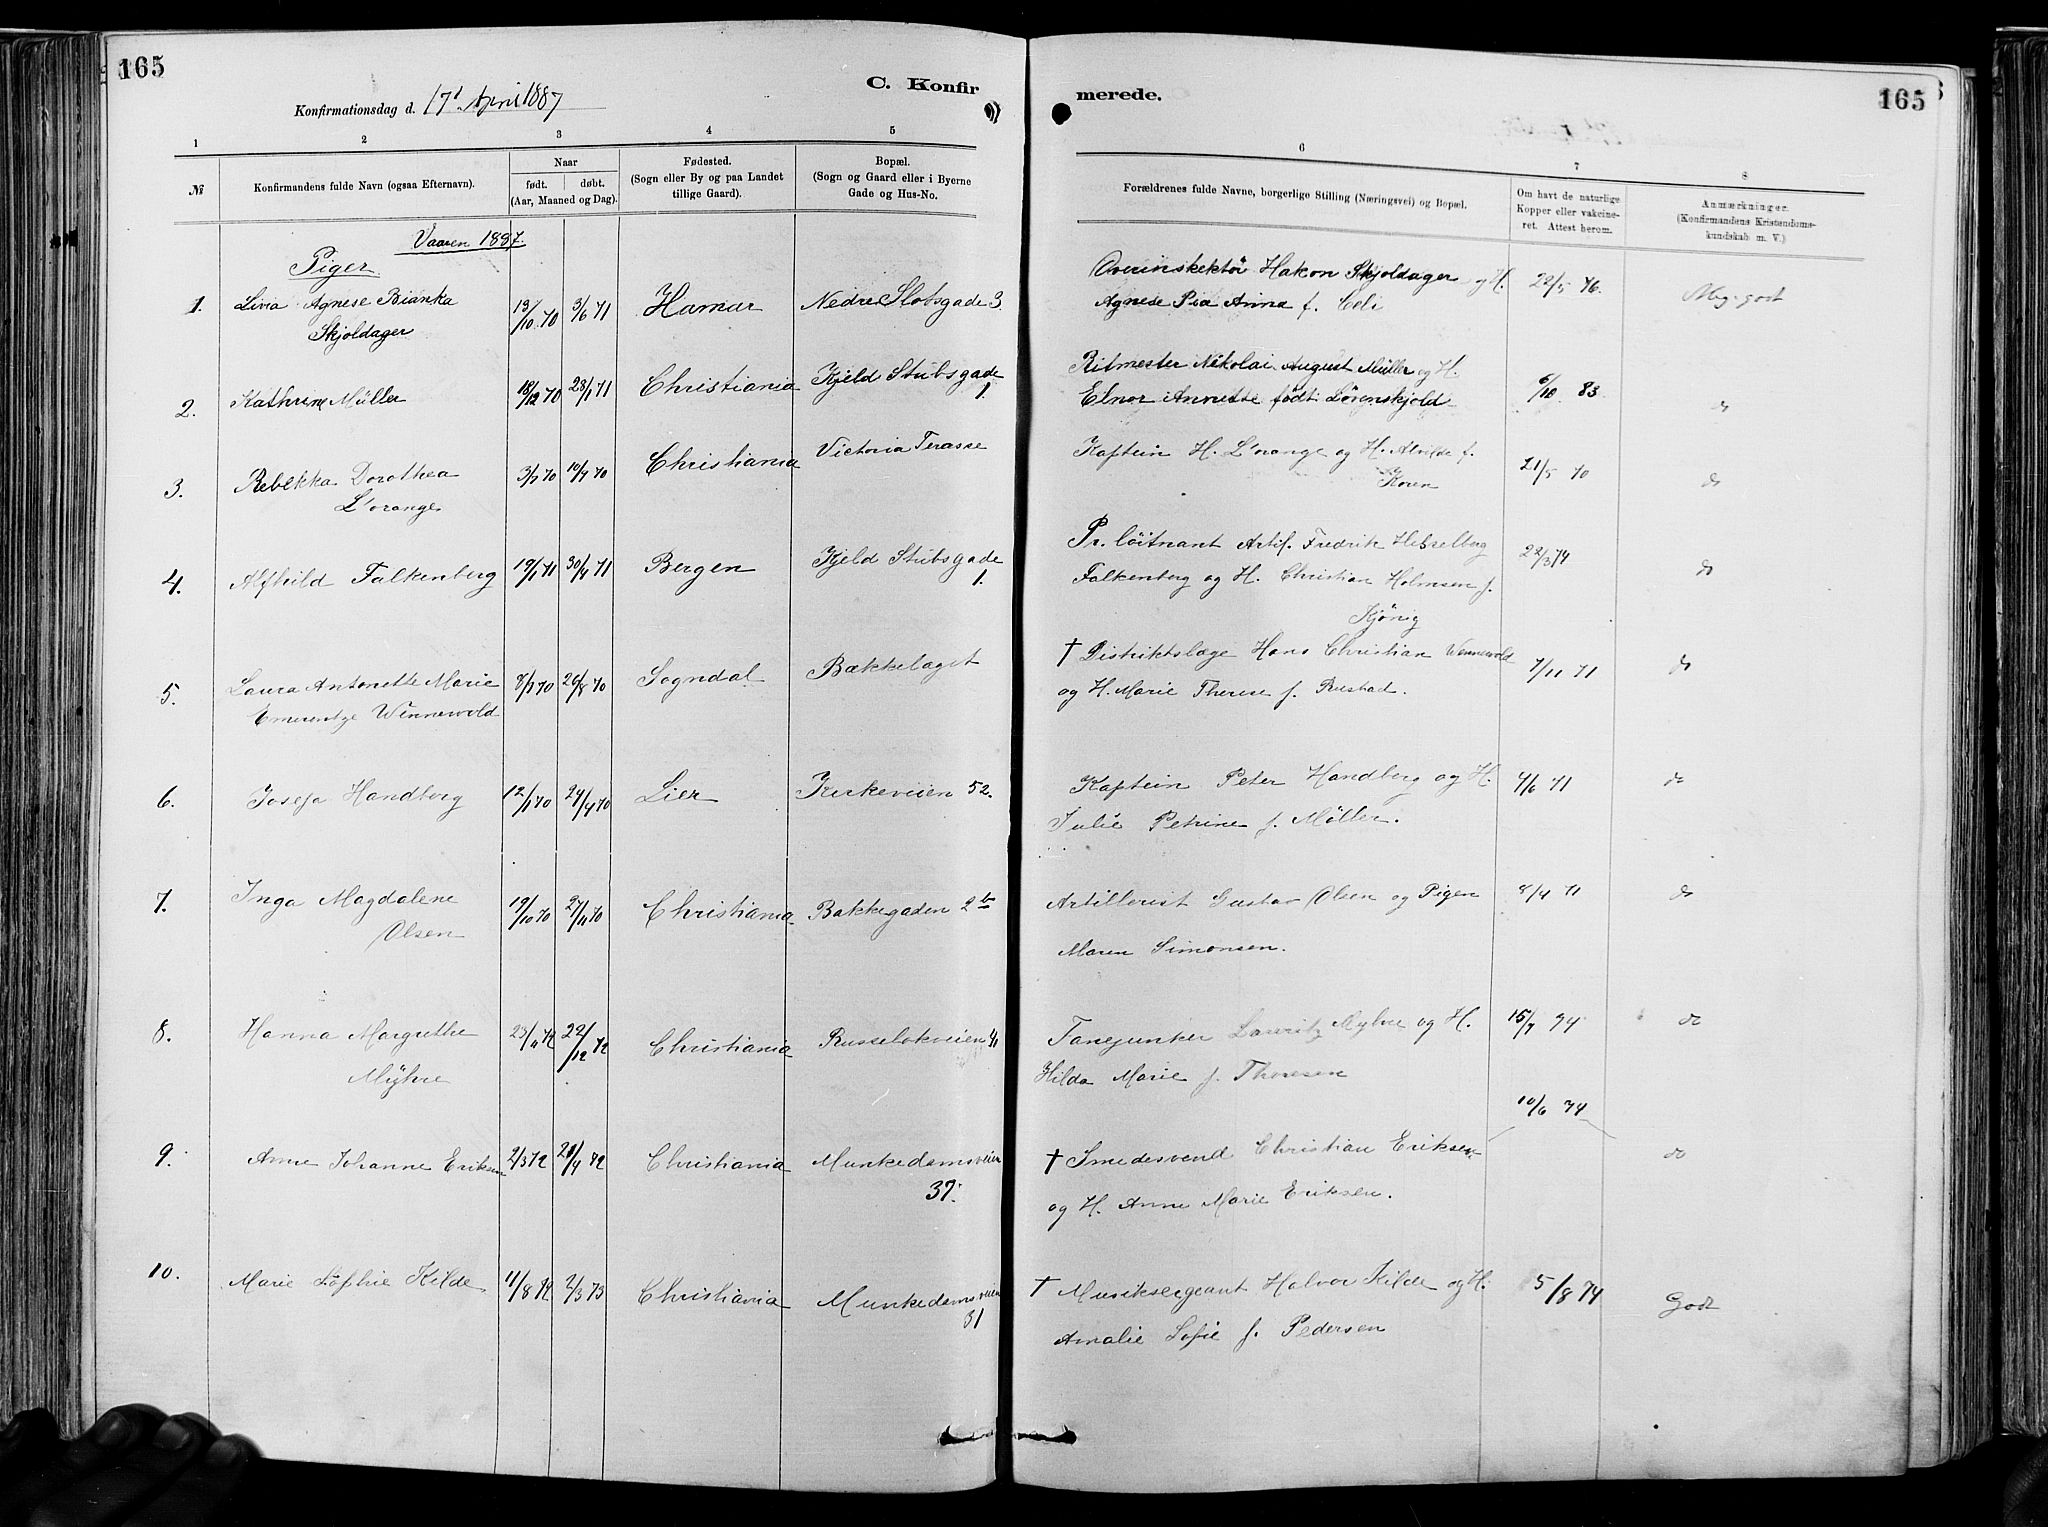 165
C. Konfir
merede.
165
Konfirmationsdag d. 17' April 1887
1 2 3 4 5 6 7 8
№ Konfirmandens fulde Navn (ogsaa Efternavn).
Naar
født. døbt.
(Aar, Maaned og Dag).
Fødested.
(Sogn eller By og paa Landet
tillige Gaard).
Bopæl.
(Sogn og Gaard eller i Byerne
Gade og Hus-No.
Forældrenes fulde Navne, borgerlige Stilling (Næringsvei) og Bopæl.
Om havt de naturlige
Kopper eller vakcine-
ret. Attest herom.
Anmærkninger.
(Konfirmandens Kristendoms-
kundskab m. V.)
Vaaren 1887.
Piger
1. Livia Agnese Bianka 13/10 70 3/6 71 Hamar Nedre Slotsgade 3. Hakon Skjoldager og H. 22/5 76. Meg. godt
Skjoldager Agnese Pia Anna f.
2. Kathrine Müller 18/12 70 28/1 71 Christiania Kjeld Stubsgade Ritmester Nikolai August Müller og H. 6/10 83 do
1. Elnor Annette født Løvenskjold
3. Rebekka Dorothea 3/7 70 10/9 70 Christiania Victoria Terasse Kaptein H. L'orange og H. Alvilde f. 21/5 70 do
L'orange Koren
4. Alfhild Falkenberg 19/1 71 30/4 71 Bergen Kjeld Stubsgade Pr. löitnant Artil. Fredrik Hesselberg 22/3 74 do
1. Falkenberg og H. Christian Holmsen f.
5. Laura Antonette Marie 26/8 70 Sogndal Bækkelaget † Distriktslæge Hans Christian Wennevold 7/11 71 do
Emerentze Winnevold og H. Marie Therese f. Rustad.
6. Josefa Handberg 12/1 70 24/4 70 Lier Kirkeveien 52. Kaptein Peter Handberg og H. 4/6 71 do
Julie Petrine f. Møller.
7. Inga Magdalene 19/10 70 27/11 70 Christiania Bakkegaden 2b Artillerist Gustav Olsen og Pigen 8/4 71 do
Olsen Maren Simonsen.
8. Hanna Margrethe 23/11 72 22/12 72 Christiania Lauritz Myhre og H. 15/7 74 do
Myhre Hilda Marie f. Thoresen
9. Anne Johanne Eriksen 2/3 72 21/4 72 Christiania Munkedamsveien † Smedesvend Christian Eriksen 10/6 74 do
37. og H. Anne Marie Eriksen.
10. Marie Sofhie Kilde 4/8 72 2/3 73 Christiania Munkedamsveien † Musiksergeant Halvor Kilde og H. 5/8 74 Godt
31 Amalie Sofie f. Pedersen